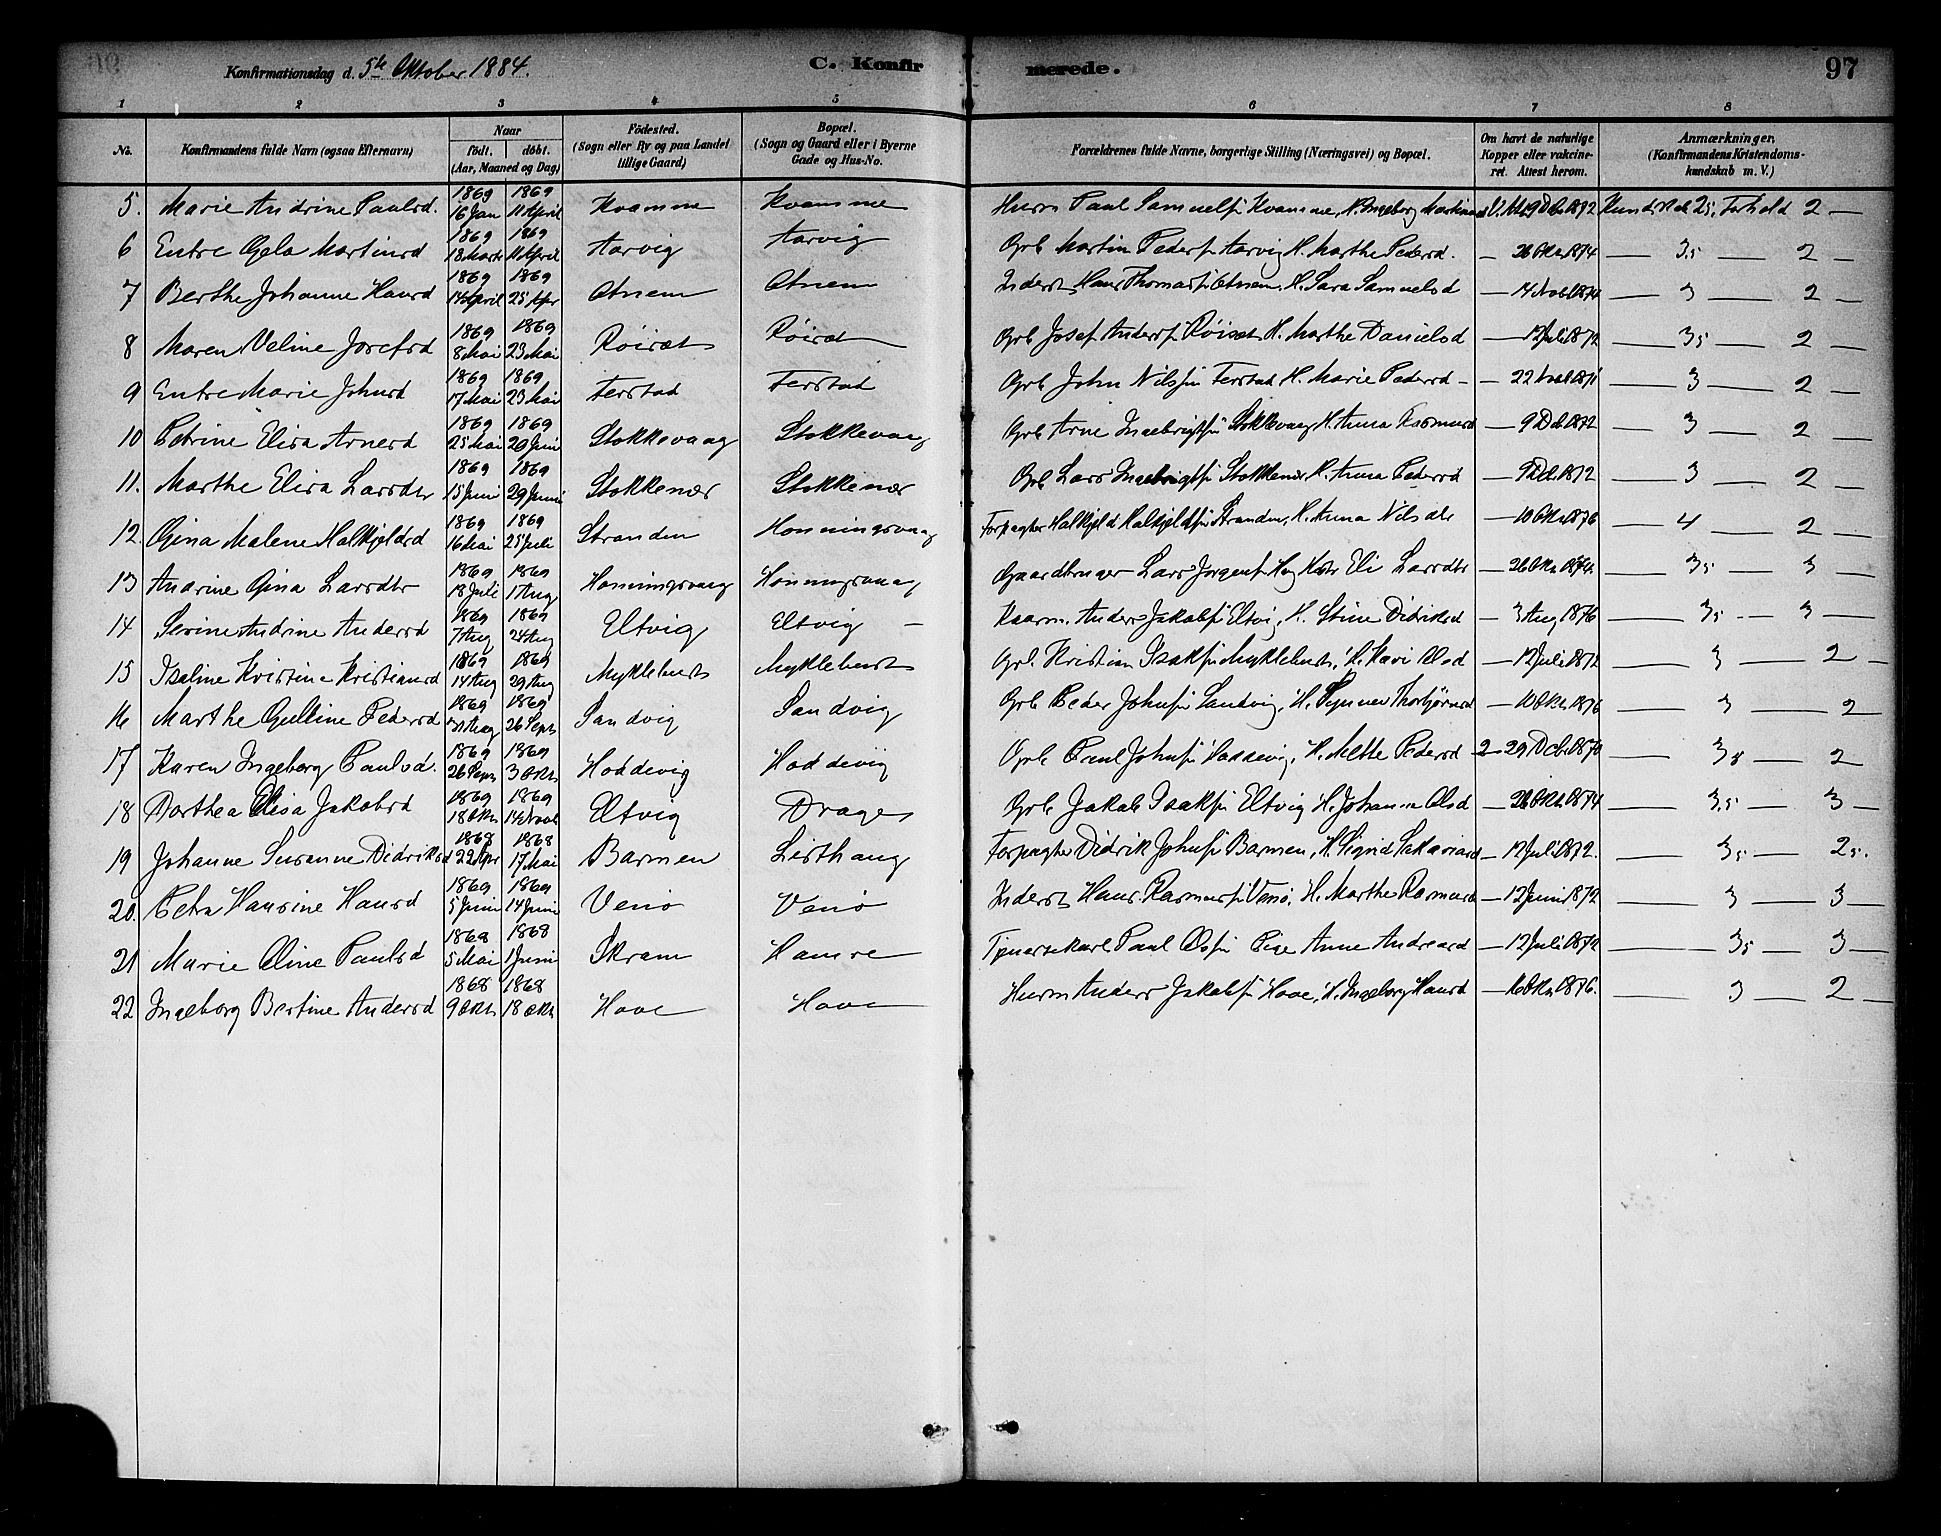 Konfirmationsdag d. 5te Oktober 1884.
C. Konfirmerede.
97
1 2 3 4 5 6 7 8
No. Konfirmandens fulde Navn (ogsaa Efternavn) Naar født. døbt. (Aar, Maaned og Dag) Födested. (Sogn eller By og paa Landet tillige Gaard) Bopæl. (Sogn og Gaard eller i Byerne Gade og Hus-No. Forældrenes fulde Navne, borgerlige Stilling (Næringsvei) og Bopæl. Om havt de naturlige Kopper eller vakcineret. Attest herom. Anmærkninger. (Konfirmandens Kristendomskundskab m. V.)
5. Marie Andrine Paulsd. 1869 16 Jan 1869 11 April Kvamme Kvamme Husm Paul Samuelss Kvamme, H. Ingeborg Martinsd V. 9 Dcb 1872 Kundskab 2,5. Forhold 2 —
6 Entre Gjela Martinsd 1869 18 Marts 1869 11 April Aarvig Aarvig Grb Martin Peders Aarvig H. Marthe Pedersd. — 26 Okt 1874 — 3,5 — 2 —
7 Berthe Johanne Hansd 1869 14 April 1869 25 Apr Otnem Otnem Inderst Hans Thomass Otnem, H. Sara Samuelsd — 14 Nvb 1874 — 3 — 2 —
8 Maren Veline Josefsd 1869 8 Mai 1869 23 Mai Röiset Röiset Grb Josef Anders Röiset H. Marthe Danielsd — 12 Juli 1872 — 3,5 — 2 —
9 Entre Marie Johnsd 1869 17 Mai 1869 23 Mai Ferstad Ferstad Grb John Nilss Ferstad H. Marie Pedersd — 22 Nvb 1871 — 3 — 2 —
10 Petrine Elisa Arnesd 1869 25 Mai 1869 20 Juni Stokkevaag Stokkevaag Grb Arne Ingebrigts Stokkevaag H. Anna Rasmusd — 9 Dcb 1872 — 3 — 2 —
11. Marthe Elisa Larsdtr 1869 15 Juni 1869 29 Juni Stokkenær Stokkenær Grb Lars Ingebrigts Stokkenær H. Anna Pedersd — 9 Dcb 1872 — 3 — 2 —
12. Gina Malene Halkjeldsd 1869 16 Mai 1869 25 Juli Stranden Honningsvaag Forpagter Halkjeld Halkjelds Stranden, H. Anna Nilsdtr — 10 Okt 1876 — 4 — 2 —
13 Anarine Gina Larsdtr 1869 18 Juli 1869 1 Aug Honningsvaag Honningsvaag Gaardbruger Lars Jörgens Eli Larsdtr — 26 Okt 1874. — 3,5 — 3 —
14 Serine Andrine Andersd 1869 7 Aug 1869 24 Aug Eltvig Eltvig — Kaarm. Anders Jakobs Eltvig, H. Stine Didriksd — 3 Aug 1876 — 3,5 — 3 —
15 Isaline Kristine Kristiansd 1869 14 Aug 1869 29 Aug Myklebust Myklebust Grb. Kristian Isaks Myklebust, H. Kari Olsd — 12 Juli 1872 — 3 — 2 —
16 Marthe Gulline Pedersd 1869 31 Aug 1869 26 Sept Sandvig Sandvig Grb Peder Johns Sandvig, H. Synneve Thorbjørnsd — 10 Okt 1876 — 3 — 2
17 Karen Ingeborg Paulsd. 1869 26 Sept 1869 3 Okt Hoddevig Hoddevig Grb Paul Johns Hoddevig, H. Mette Pedersd — 29 Dcb 1870 — 3,5 — 2
18 Dorthea Elisa Jakobsd 1869 18 Okt 1869 14 Novb Eltvig Drage Grb Jakob Isaks Eltvig H. Johanne Olsd — 26 Okt 1874 — 3,5 — 3 —
19 Johanne Susanne Didriksd 1868 22 Apr 1868 17 Mai Barmen Listhaug Forpagter Didrik Johns Barmen, H. Signid Sakariasd — 12 Juli 1872. — 3,5 — 2,5.
20. Petra Hansine Hansd 1869 5 Juni 1869 14 Juni Venö Venö Inderst Hans Rasmus Venö, H. Marthe Rasmusd — 12 Juni 1872 — 3 — 3 —
21 Marie Oline Paulsd 1868 5 Mai 1868 1 Juni Skram Hamre Tjenestekarl Paul Ols Pige Anne Andreasd — 12 Juli 1872 — 3,5 — 3 —
22 Ingeborg Bertine Andersd 1868 9 Okt 1868 18 Okt Hove Hove Husm Anders Jakobs Hove, H. Ingeborg Hansd — Okt 1876. — 3 — 2 —